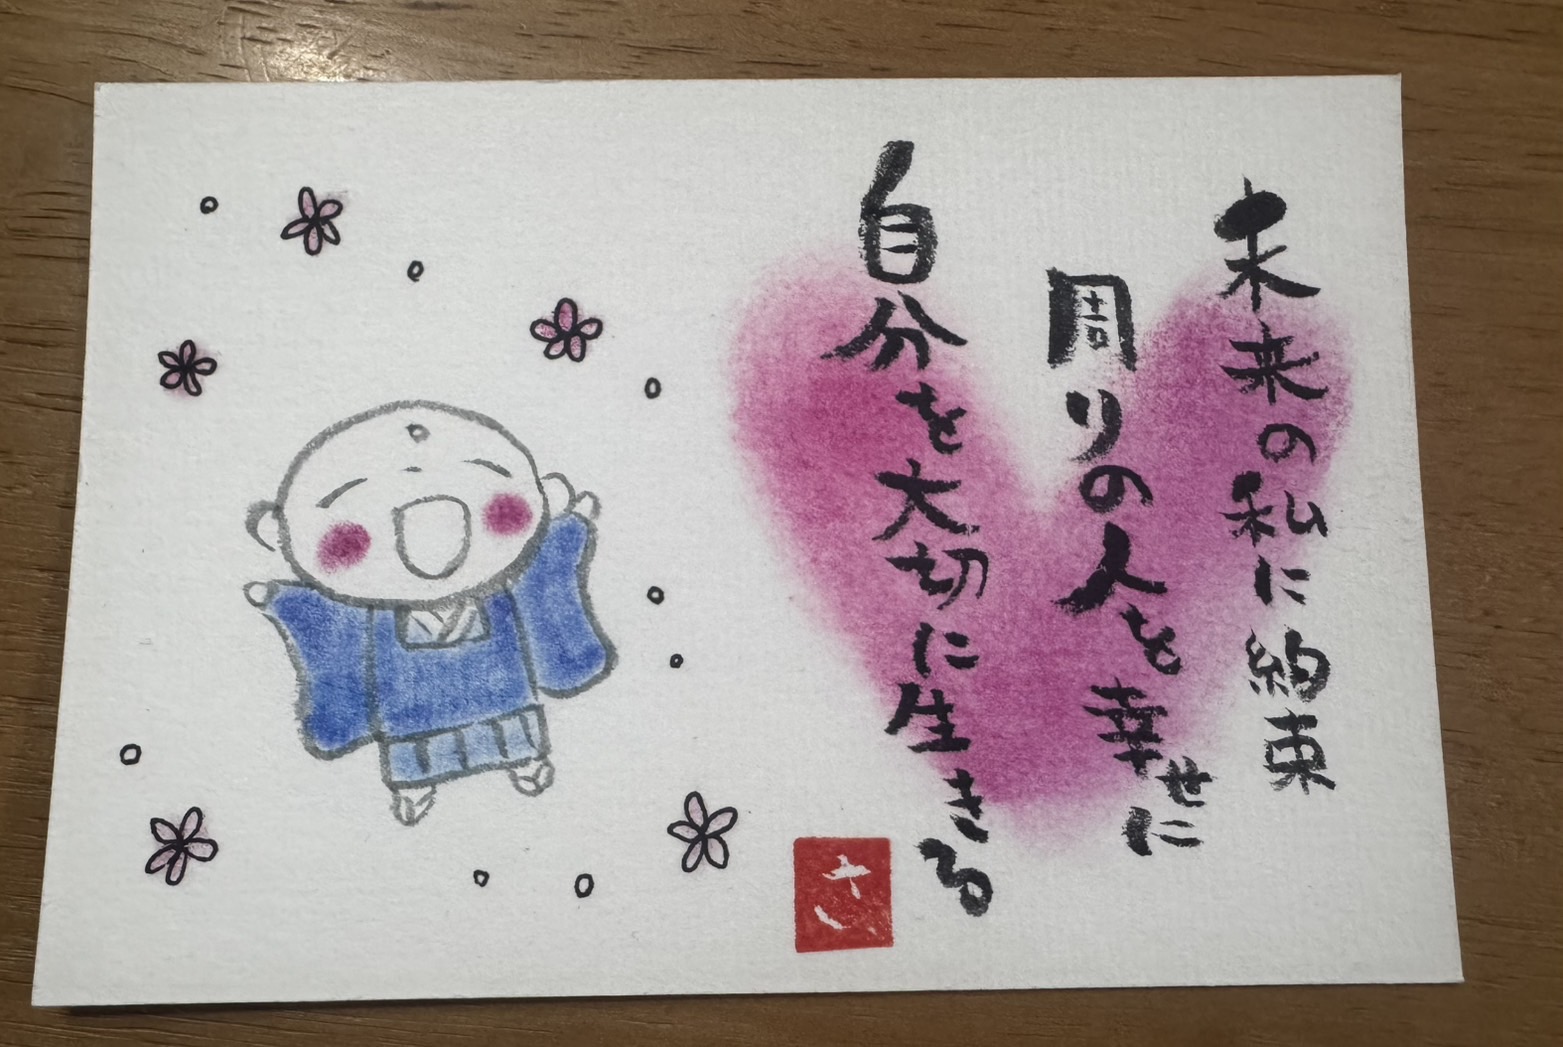 未来の私に約束
周りの人を幸せに
自分を大切に生きる
さ